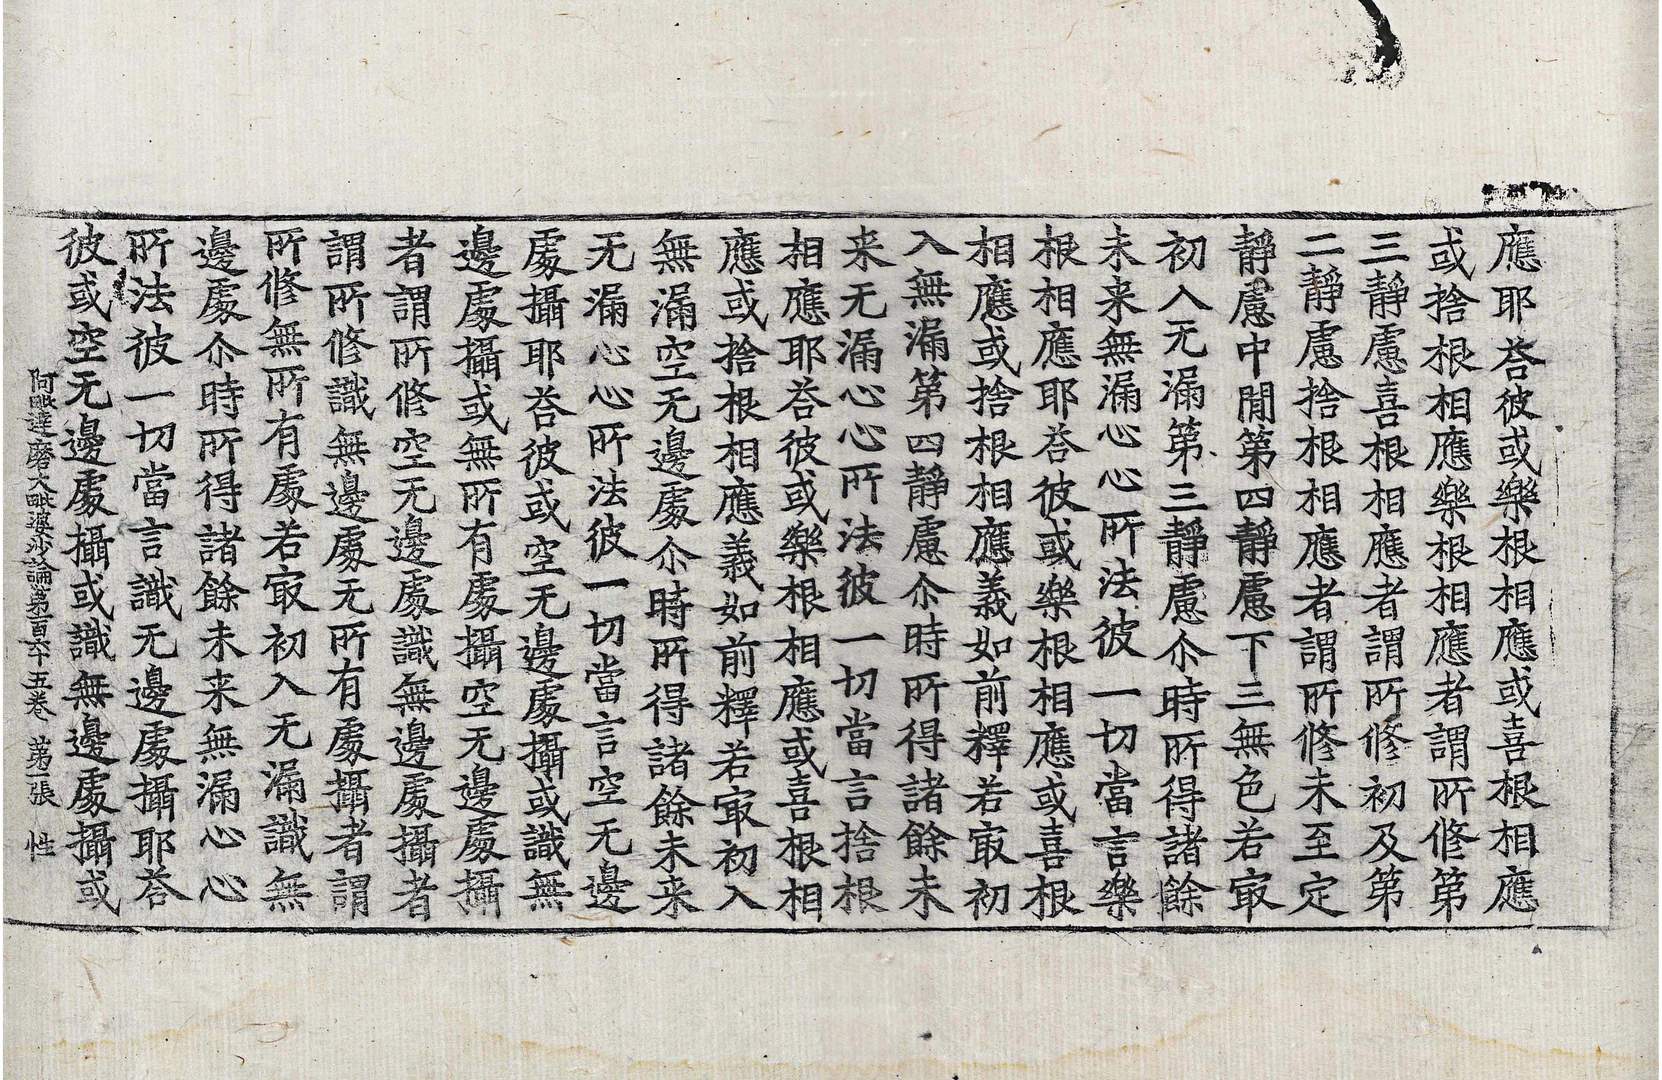 應耶荅彼或樂根相應或喜根相應
或捨根相應樂根相應者謂所修第
三靜慮喜根相應者謂所修初及第
二靜慮捨根相應者謂所修未至定
靜慮中閒第四靜慮下三無色若㝡
初入无漏第三靜慮尒時所得諸餘
未来無漏心心所法彼一切當言樂
根相應耶荅彼或樂根相應或喜根
相應或捨根相應義如前釋若㝡初
入無漏第四靜慮尒時所得諸餘未
来无漏心心所法彼一切當言捨根
相應耶荅彼或樂根相應或喜根相
應或捨根相應義如前釋若㝡初入
無漏空无邊處尒時所得諸餘未来
无漏心心所法彼一切當言空无邊
處攝耶荅彼或空无邊處攝或識無
邊處攝或無所有處攝空无邊處攝
者謂所修空无邊處識無邊處攝者
謂所修識無邊處无所有處攝者謂
所修無所有處若㝡初入无漏識無
邊處尒時所得諸餘未来無漏心心
所法彼一切當言識无邊處攝耶荅
彼或空无邊處攝或識無邊處攝或
阿毗達磨大毗婆沙論第一百六十五卷 第一張 性